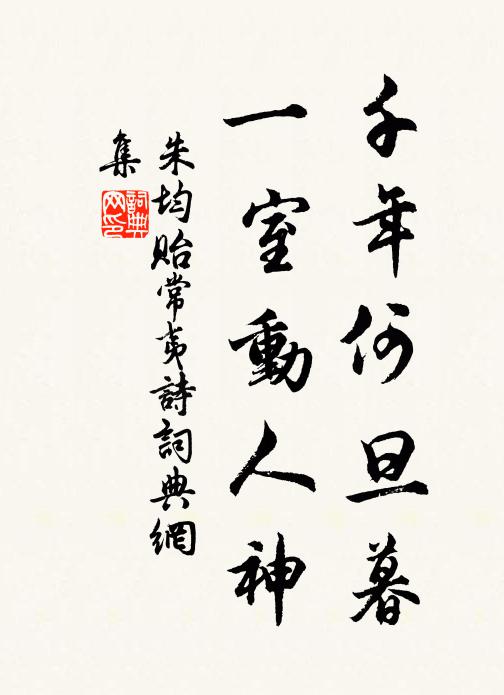 千年何旦暮
一室動人神
朱均貽常夷詩詞典網
集
詞典網印